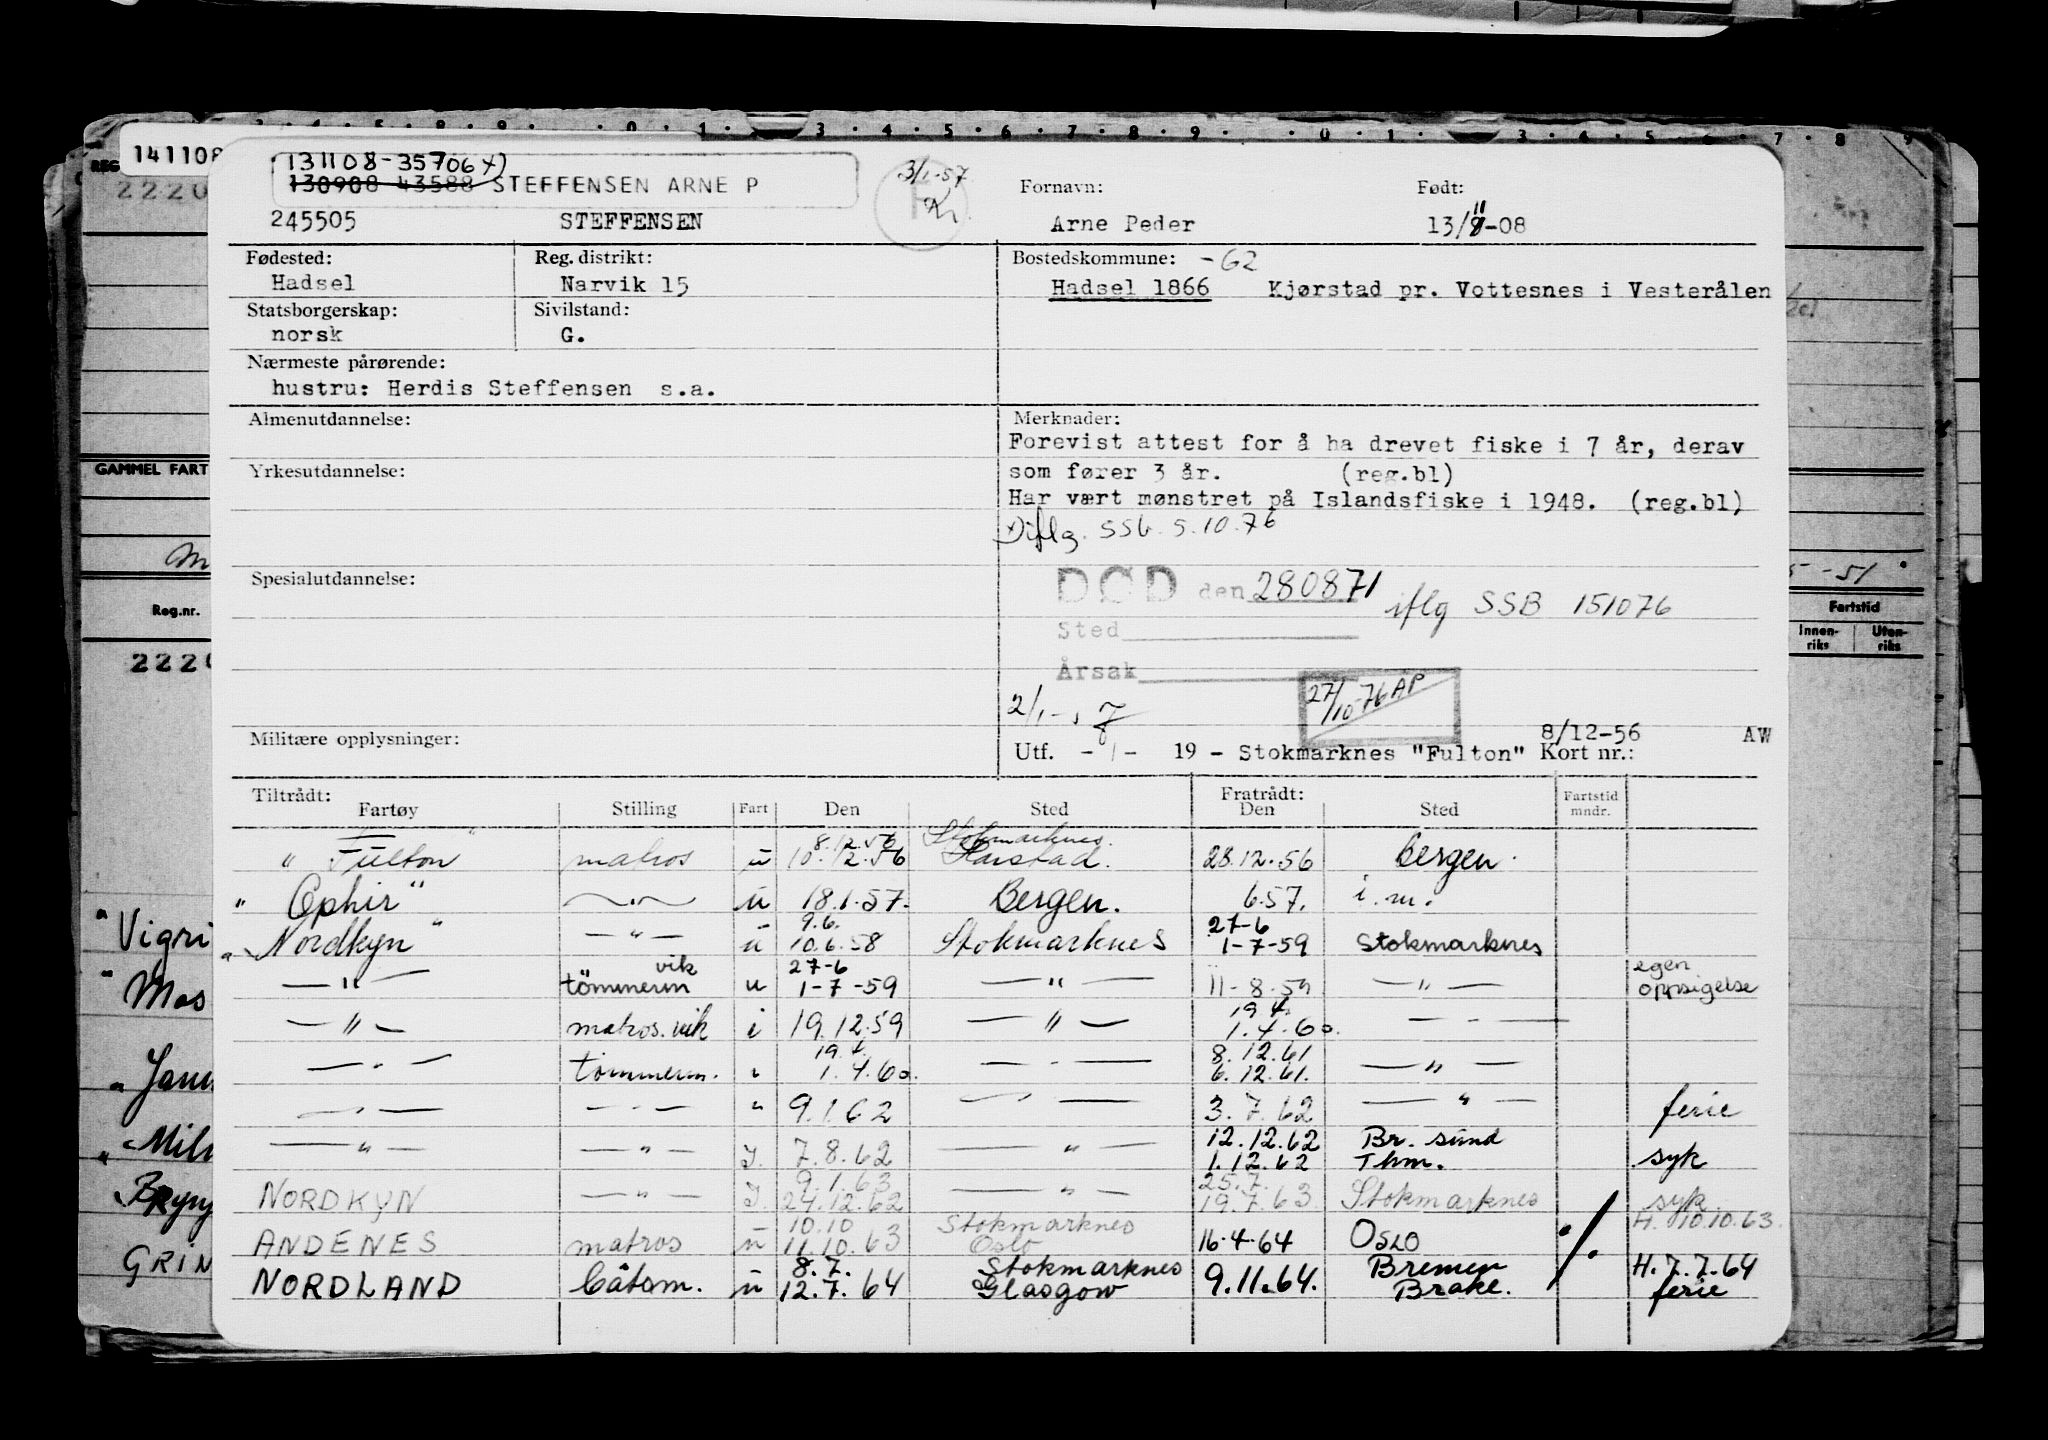 141108
131108-35706 x)
130908 43588 STEFFENSEN ARNE P
3/1-57
245505 STEFFENSEN
Fornavn: Født:
Arne Peder 13/11-08
Fødested: Reg. distrikt: Bostedskommune: -62
Hadsel Narvik 15 Hadsel 1866 Kjørstad pr. Vottesnes i Vesterålen
Statsborgerskap: Sivilstand:
norsk G.
Nærmeste pårørende:
hustru: Herdis Steffensen s.a.
Almenutdannelse: Merknader:
Forevist attest for å ha drevet fiske i 7 år, derav
Yrkesutdannelse: som fører 3 år. (reg.bl)
Har vært mønstret på Islandsfiske i 1948. (reg.bl)
x) iflg. SSB. 5.10.76
Spesialutdannelse:
DØD den 280871 iflg SSB 151076
Sted
Årsak
27/10-76 AP
8/12-56 AW
Militære opplysninger: Utf. -1- 19 - Stokmarknes "Fulton" Kort nr.:
Tiltrådt: Fratrådt:
Fartøy Stilling Fart Den Sted Den Sted Fartstid mndr.
8.12.56 Stokmarknes.
" Fulton " matros u 10.12.56 Harstad. 28.12.56 Bergen.
" Ophir " — " — u 18.1.57. Bergen. 6.57. i.m.
9.6. 27-6
" Nordkyn " — " — u 10.6.58 Stokmarknes 1-7-59 Stokmarknes
vik 27-6 egen
— " — tömmerm u 1-7-59 — " — 11-8-59 — " — oppsigelse
19.4.
— " — matros. vik i 19.12.59 — " — 1.4.60. — " —
19.4. 8.12.61
— " — tömmerm. " 1.4.60. — " — 6.12.61. — " —
— " — — " — " 9.1.62 — " — 3.7.62 — " — ferie
12.12.62 Br. sund
— " — — " — I. 7.8.62 — " — 1.12.62 Thm. syk
9.1.63 25.7.
NORDKYN — " — I. 24.12.62 — " — 19.7.63 Stokmarknes syk
10.10 Stokmarknes H. 10.10.63.
ANDENES matros u 11.10.63 Oslo 16.4.64 OSLO
8.7. Stokmarknes Bremen H. 7.7.64
NORDLAND Båtsm. u 12.7.64 Glasgow 9.11.64. Brake. ferie
GAMMEL FART
Reg.nr.
Fartstid
Innenriks Utenriks
" Vigri
" Mos
GRIN